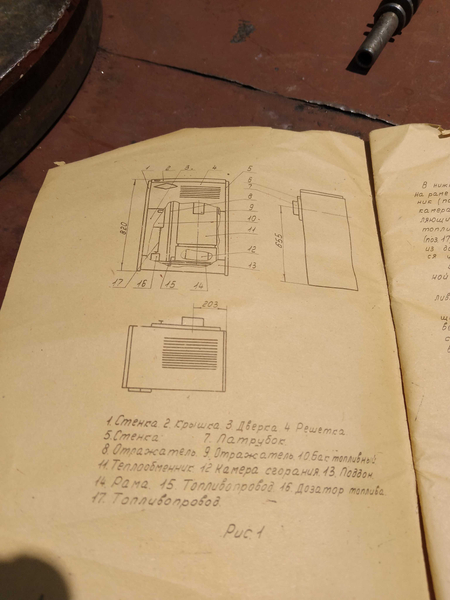 1 2 3 4 5
6
7
8
9
10
11
12
13
820
655
17 16 15 14
203
1. Стенка 2. Крышка 3. Дверка 4. Решетка
5. Стенка 7. Патрубок
8. Отражатель. 9. Отражатель. 10. Бак топливный
11. Теплообменник. 12 Камера сгорания. 13. Поддон.
14 Рама. 15. Топливопровод. 16. Дозатор топлива
17. Топливопровод.
Рис. 1
В ниж
на раме
ник (по
камера
ляющи
топли
(поз.17)
из ба
ся ч
ной
лив